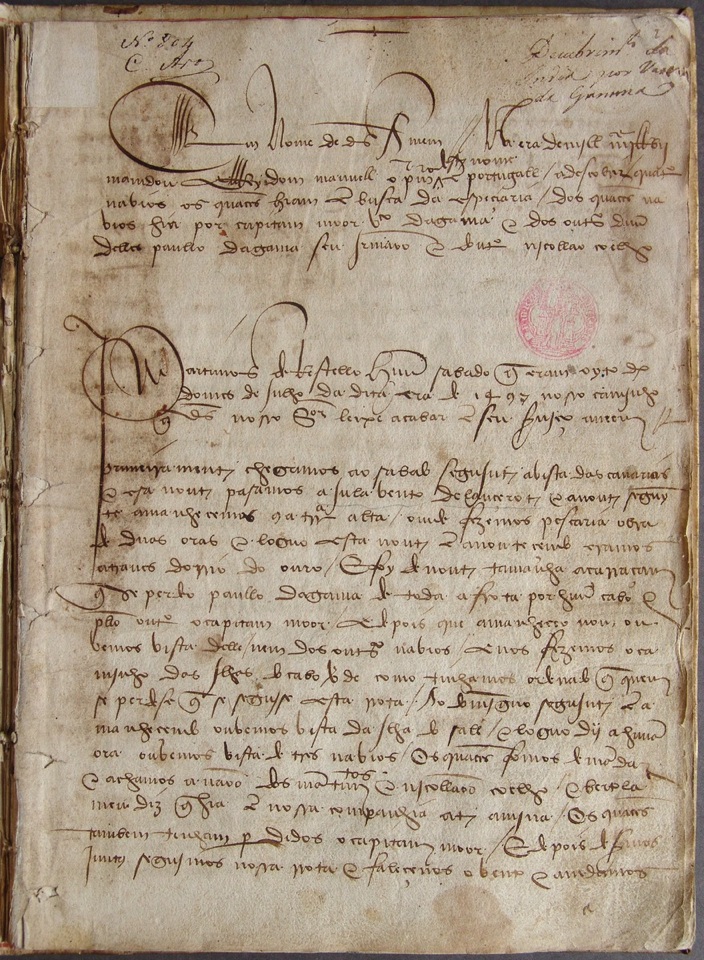 Nº 804
C. Arº
Descubrimtº da
India por Vasco
da Gamma
Em Nome de ds Amem / Na era de mill iiijc LRvij
mandou ell Rey dom manuell o primº deste nome em portugall / a descobrir quatro
navios os quaees hiam em busca da especiaria / dos quaees na
vios hia por capitam moor Vco dagama e dos outrs duū
delles paullo dagama seu Irmãoo e do outrº nicollao coelho
Partimos de Restello huū sabado q̃ eram oyto dias
domes de julho da dita era de 1497 nosso caminho
q̃ ds nosso Sor leixe acabar em seu serviço amem
Primeiramente chegamos ao sabado seguinte avista das canarias
e esa noute pasamos a julavento de lançarote e anoute segin
te amanhecemos com a terra alta / onde fezemos pescaria obra
de duas oras e loguo esta noute em anoutecendo eramos
atraves do rrio do ouro / E foy de noute tamanha a carraçam
q̃ se perdeo paullo dagama de toda a frota por huū cabo e
pllo outrº o capitam moor E depois que amanheceo nom ou
vemos vista delle / nem dos outrs navios E nos fezemos o ca
minho das Ilhas do cabo verde como tinhamos ordenado q̃ quem
se perdesse q̃ se segisse esta rota / Ao domingo seguinte em a
manhecendo ouvemos vista da Ilha do sall / e loguo dij a huūa
ora ouvemos vista de tres navios / Os quaees fomos demandar
e achamos a naoo dos mantimentos e nicollaoo coelho / e bertola
meu diz q̃ hia em nossa companhia ate a mina / Os quaees
tambem tinham perdidos o capitam moor / E depois de sermos
juntos seguimos nossa rota e faleçenos o vento e andamos